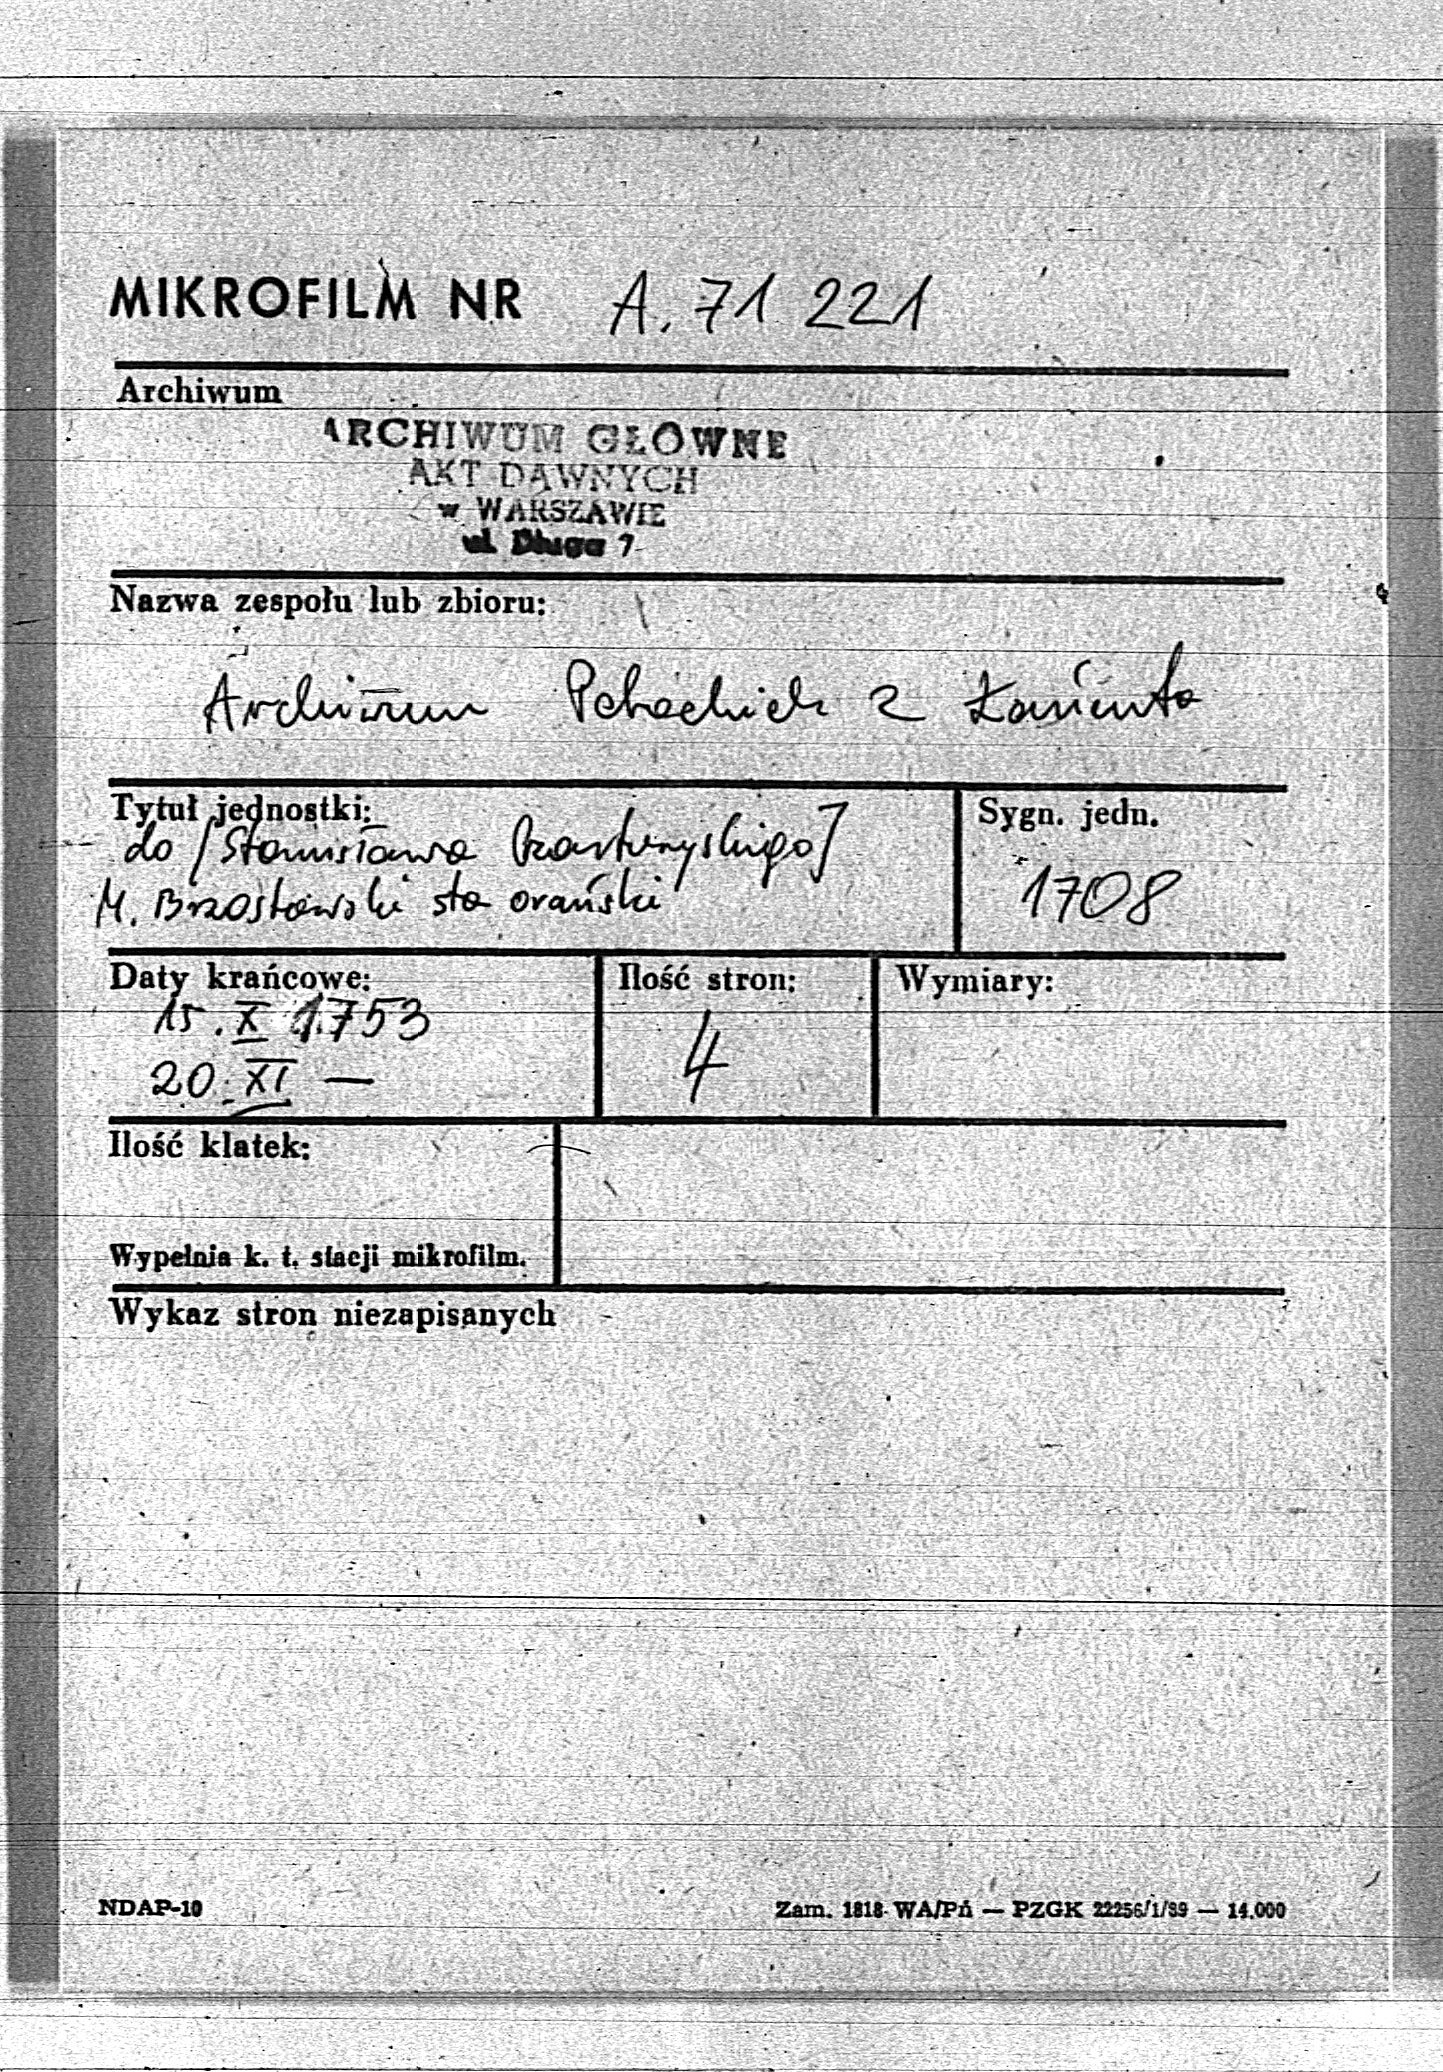 MIKROFILM NR A. 71 221
Archiwum
ARCHIWUM GŁÓWNE
AKT DAWNYCH
w WARSZAWIE
ul. Długa 7
Nazwa zespołu lub zbioru:
Archiwum Potockich z Łańcuta
Tytuł jednostki:
do [Stanisława Czartoryskiego]
M. Brzostowski sta orański
Sygn. jedn.
1708
Daty krańcowe:
15. X 1753
20. XI —
Ilość stron:
4
Wymiary:
Ilość klatek:
Wypełnia k. t. stacji mikrofilm.
Wykaz stron niezapisanych
NDAP-10
Zam. 1818 WA/Pń — PZGK 22256/1/89 — 14.000